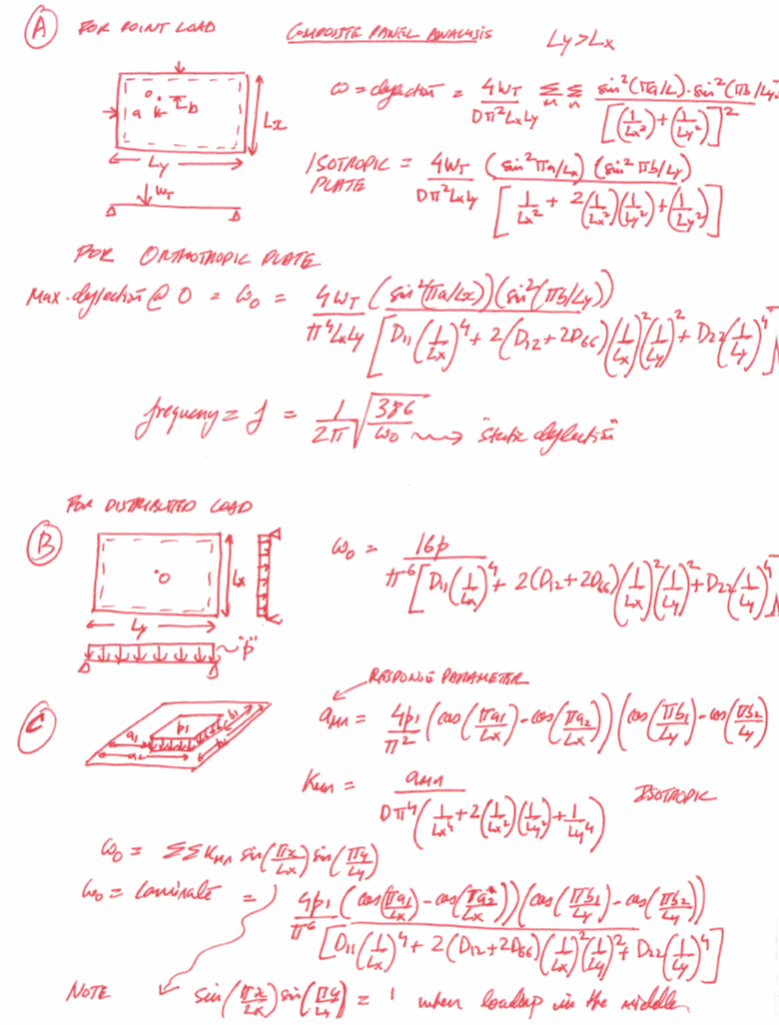 A FOR POINT LOAD COMPOSITE PANEL ANALYSIS Ly>Lx
o a b Lx
Ly
W_T
ω = deflection = 4W_T / Dπ²LxLy Σ_m Σ_n sin²(πa/L)·sin²(πb/Ly / [(1/Lx²)+(1/Ly²)]²
ISOTROPIC PLATE = 4W_T / Dπ²LxLy (sin² πa/Lx) (sin² πb/Ly) / [1/Lx² + 2(1/Lx²)(1/Ly²)+(1/Ly²)]
FOR ORTHOTROPIC PLATE
Max. deflection @ O = ω₀ = 4W_T (sin²(πa/Lx))(sin²(πb/Ly)) / π⁴LxLy [D₁₁(1/Lx)⁴ + 2(D₁₂+2D₆₆)(1/Lx)²(1/Ly)² + D₂₂(1/Ly)⁴]
frequency = f = 1/2π √386/ω₀ → "static deflection"
FOR DISTRIBUTED LOAD
B
O Lx
Ly
"p"
ω₀ = 16p / π⁶[D₁₁(1/Lx)⁴ + 2(D₁₂+2D₆₆)(1/Lx)²(1/Ly)² + D₂₂(1/Ly)⁴]
RESPONSE PARAMETER
C
p₁ a₁ a₂ b₁ b₂
a_mn = 4p₁/π² (cos(πa₁/Lx) - cos(πa₂/Lx)) (cos(πb₁/Ly) - cos(πb₂/Ly)
K_mn = a_mn / Dπ⁴(1/Lx⁴ + 2(1/Lx²)(1/Ly²) + 1/Ly⁴) ISOTROPIC
ω₀ = ΣΣ K_mn sin(πx/Lx) sin(πy/Ly)
ω₀ = laminate = 4p₁ (cos(πa₁/Lx) - cos(πa₂/Lx)) (cos(πb₁/Ly) - cos(πb₂/Ly)) / π⁶ [D₁₁(1/Lx)⁴ + 2(D₁₂+2D₆₆)(1/Lx)²(1/Ly)² + D₂₂(1/Ly)⁴]
NOTE sin(πx/Lx) sin(πy/Ly) = 1 when loadap in the middle